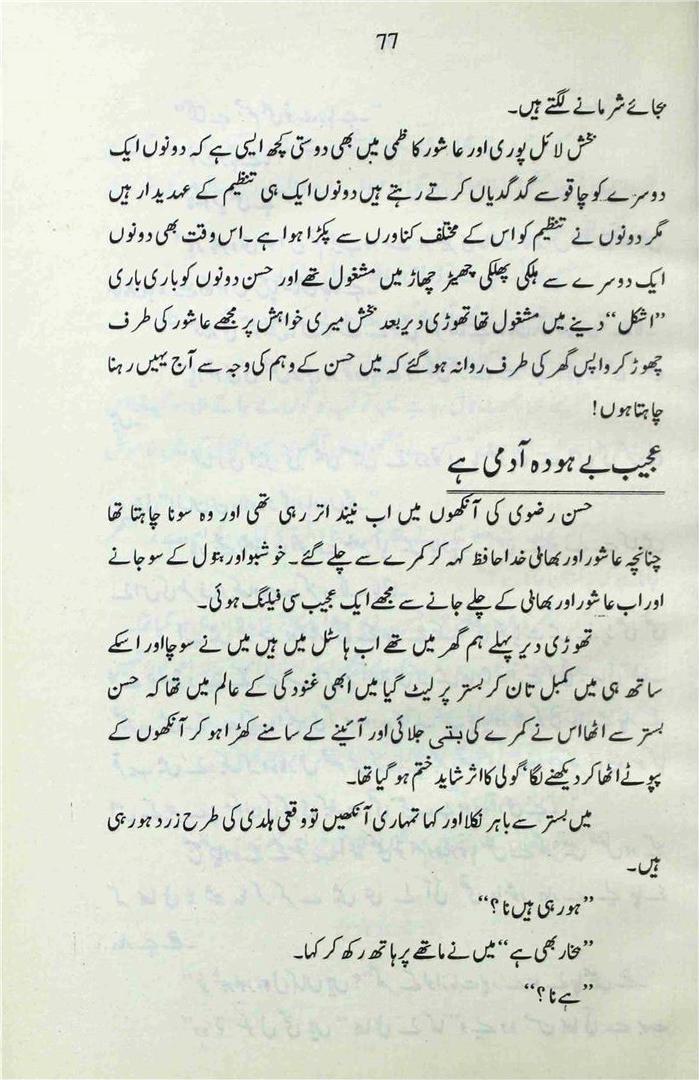 77
بجائے شرمانے لگتے ہیں۔
بخش لائل پوری اور عاشور کاظمی میں بھی دوستی کچھ ایسی ہے کہ دونوں ایک
دوسرے کو چاقو سے گدگدیاں کرتے رہتے ہیں دونوں ایک ہی تنظیم کے عہدیدار ہیں
مگر دونوں نے تنظیم کو اس کے مختلف کناورں سے پکڑا ہوا ہے۔ اس وقت بھی دونوں
ایک دوسرے سے ہلکی پھلکی چھیڑ چھاڑ میں مشغول تھے اور حسن دونوں کو باری باری
”اشکل“ دینے میں مشغول تھا تھوڑی دیر بعد بخش میری خواہش پر مجھے عاشور کی طرف
چھوڑ کر واپس گھر کی طرف روانہ ہو گئے کہ میں حسن کے وہم کی وجہ سے آج یہیں رہنا
چاہتا ہوں!
عجیب بے ہودہ آدمی ہے
حسن رضوی کی آنکھوں میں اب نیند اتر رہی تھی اور وہ سونا چاہتا تھا
چنانچہ عاشور اور بھائی خدا حافظ کہہ کر کمرے سے چلے گئے۔ خوشبو اور بتول کے سو جانے
اور اب عاشور اور بھائی کے چلے جانے سے مجھے ایک عجیب سی فیلنگ ہوئی۔
تھوڑی دیر پہلے ہم گھر میں تھے اب ہاسٹل میں ہیں میں نے سوچا اور اسکے
ساتھ ہی میں کمبل تان کر بستر پر لیٹ گیا میں ابھی غنودگی کے عالم میں تھا کہ حسن
بستر سے اٹھا اس نے کمرے کی بتی جلائی اور آئینے کے سامنے کھڑا ہو کر آنکھوں کے
پپوٹے اٹھا کر دیکھنے لگا‘ گولی کا اثر شاید ختم ہو گیا تھا۔
میں بستر سے باہر نکلا اور کہا تمہاری آنکھیں تو وقعی ہلدی کی طرح زرد ہو رہی
ہیں۔
”ہو رہی ہیں نا؟“
”بخار بھی ہے“ میں نے ماتھے پر ہاتھ رکھ کر کہا۔
”ہے نا؟“